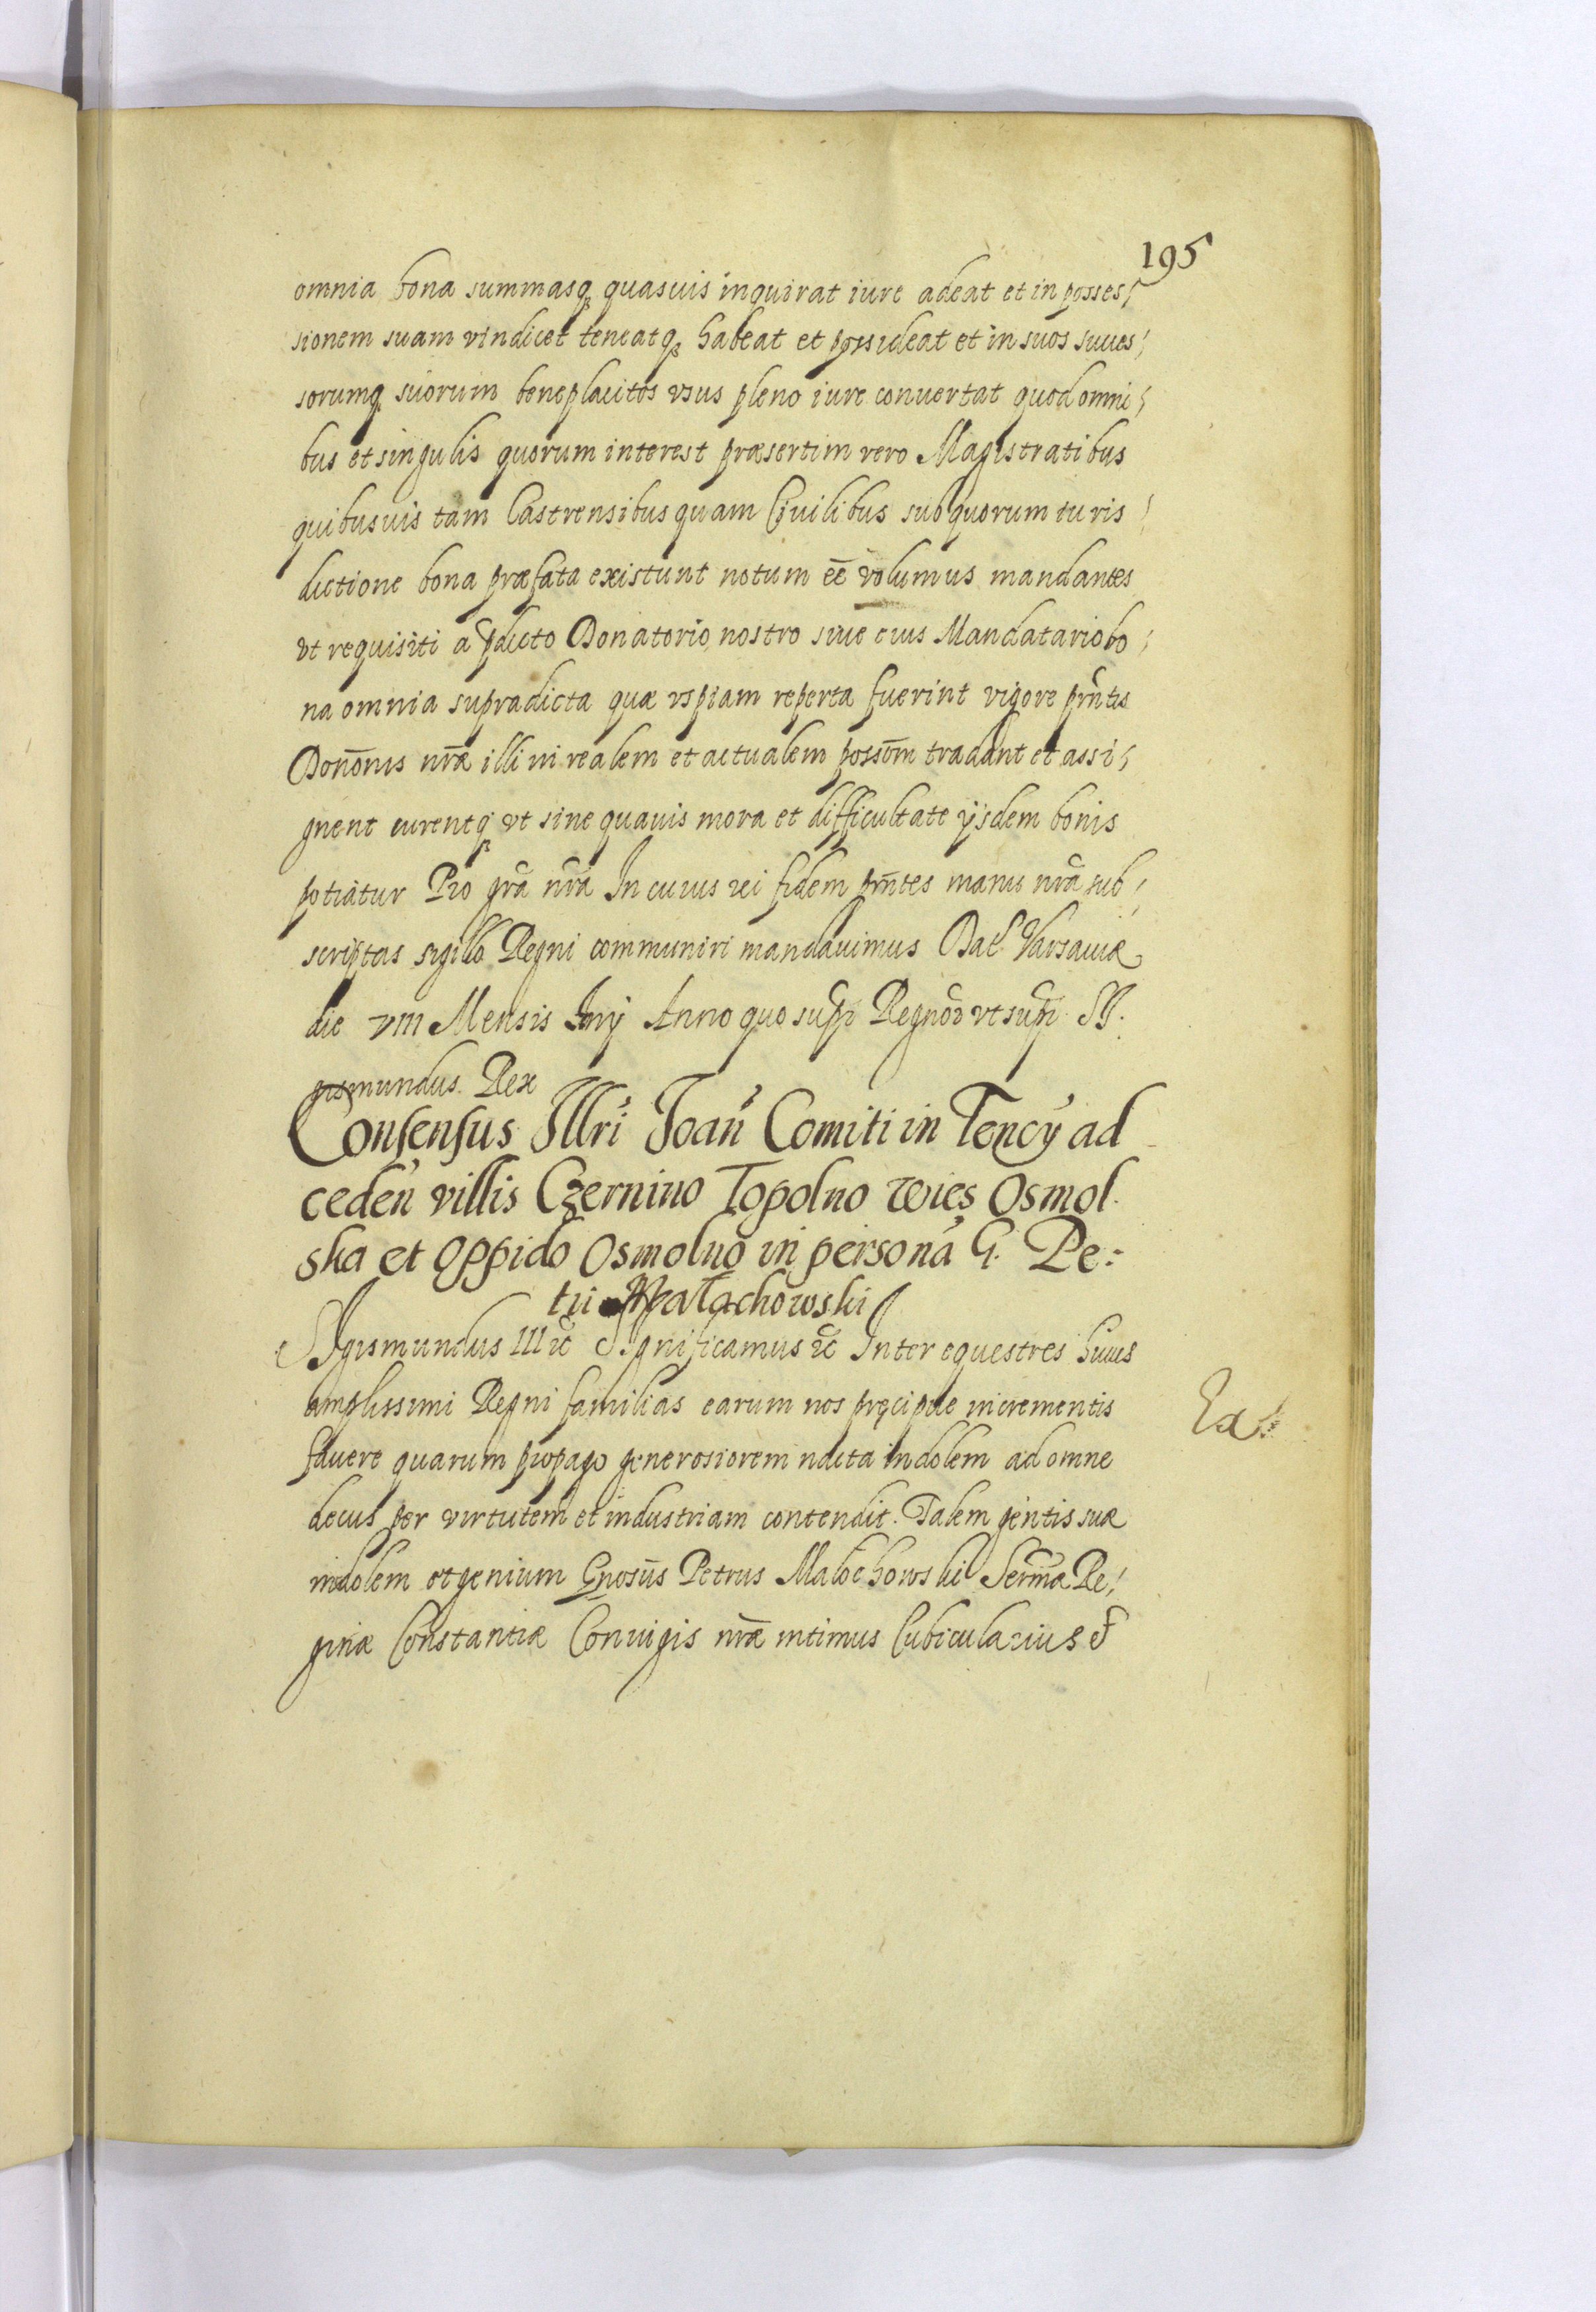 195
omnia bona summasq, quasuis inquirat iure adeat et in posses,
sionem suam vindicet teneatq, habeat et possideat et in suos succes,
sorumq, suorum beneplacitos vsus pleno iure conuertat quod omni,
bus et singulis quorum interest præsertim vero Magistratibus
quibusuis tam Castrensibus quam Ciuilibus sub quorum iuris,
dictione bona præfata existunt notum ēē volumus mandantes
vt requisiti a p̄dicto Donatorio nostro siue eius Mandatario bo,
na omnia supradicta quæ vspiam reperta fuerint vigore pn̄tis
Dono͞nis nr̄æ illi in realem et actualem posso͞m tradant et assi,
gnent curentq, vt sine quauis mora et difficultate ijsdem bonis
potiatur Pro gr̄a nr̄a In cuius rei fidem pn̄tes manu nr̄a sub,
scriptas sigillo Regni communiri mandauimus Dat Varsauiæ
die VIII Mensis Anno quo sup̄ Regnor̄ vt sup̄. Si,
gismundus Rex
Consensus Illri Joan̄ Comiti in Tency ad
ceden̄ villis Czernino Topolno wies Osmol,
ska et oppido Osmolno in persona͂ G. Pe=
tri Małachowski
Sigismundus III etc̄ Significamus etc̄ Inter equestres huius
amplissimi Regni familias earum nos præcipue incrementis
fauere quarum propago generosiorem nacta indolem ad omne
decus per virtutem et industriam contendit. Talem gentis suæ
indolem et genium Gnosūs Petrus Małochowski Serm̄æ Re,
ginæ Constantiæ Coniugis nr̄æ intimus Cubicularius et
Ex.